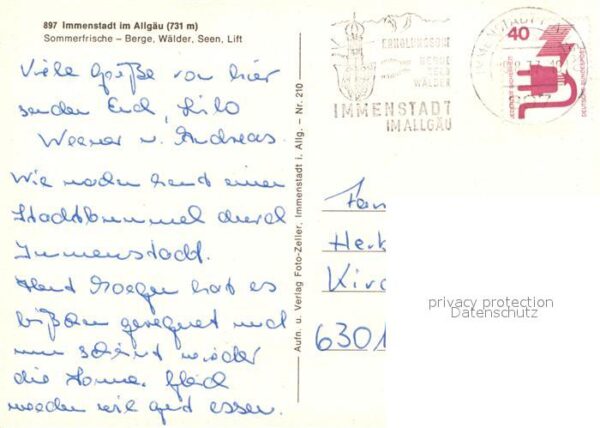 897 Immenstadt im Allgäu (731 m)
Sommerfrische – Berge, Wälder, Seen, Lift
Viele Grüße von hier
senden Euch, Lilo
Werner u. Andreas.
Wir machen heut einen
Stadtbummel durch
Immenstadt.
Heut Morgen hat es
bißchen geregnet und
nun scheint wieder
die Sonne. Gleich
werden wir gut essen.
Aufn. u. Verlag Foto-Zeller, Immenstadt i. Allg. – Nr. 210
ERHOLUNGSORT
BERGE
SEEN
WÄLDER
IMMENSTADT
IM ALLGÄU
40
JEDERZEIT SICHERHEIT
DEUTSCHE BUNDESPOST
Fam
Herb
Kirc
6301
privacy protection
Datenschutz